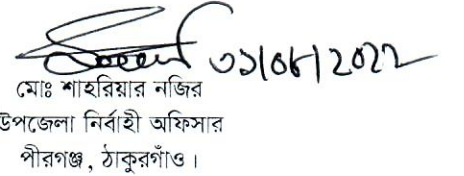 ৩১/০৮/2022
মোঃ শাহরিয়ার নজির
উপজেলা নির্বাহী অফিসার
পীরগঞ্জ, ঠাকুরগাঁও।